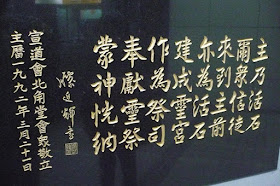 主乃活石
爾眾信徒
來到主前
亦為活石
建成靈宮
作為祭司
奉獻靈祭
蒙神悅納
滕近輝書
宣道會北角堂會眾敬立
主曆一九九二年三月二十日